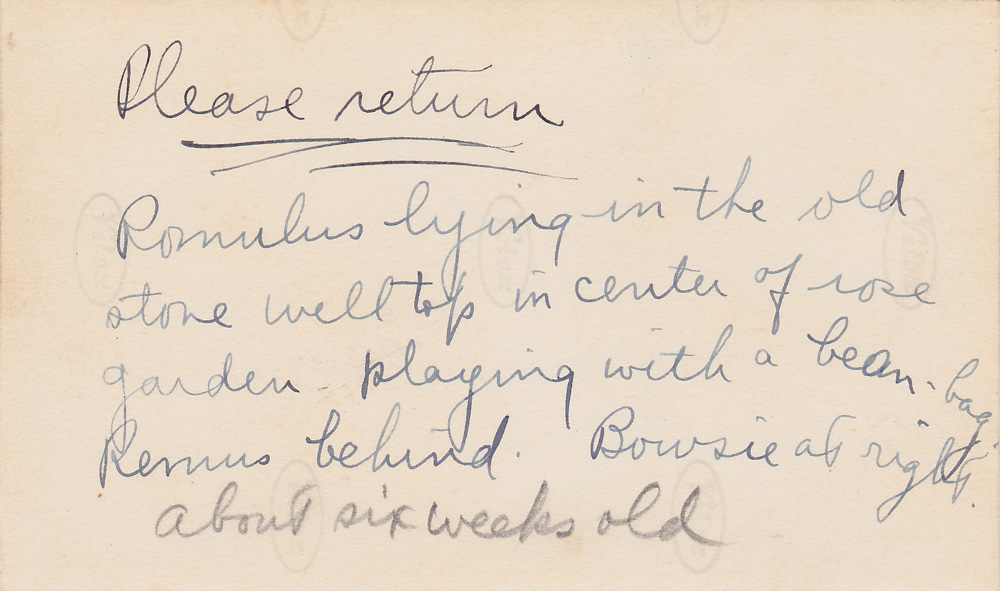 Please return
Romulus lying in the old
stone well top in center of rose
garden - playing with a bean-bag.
Remus behind. Bowsie at right.
about six weeks old